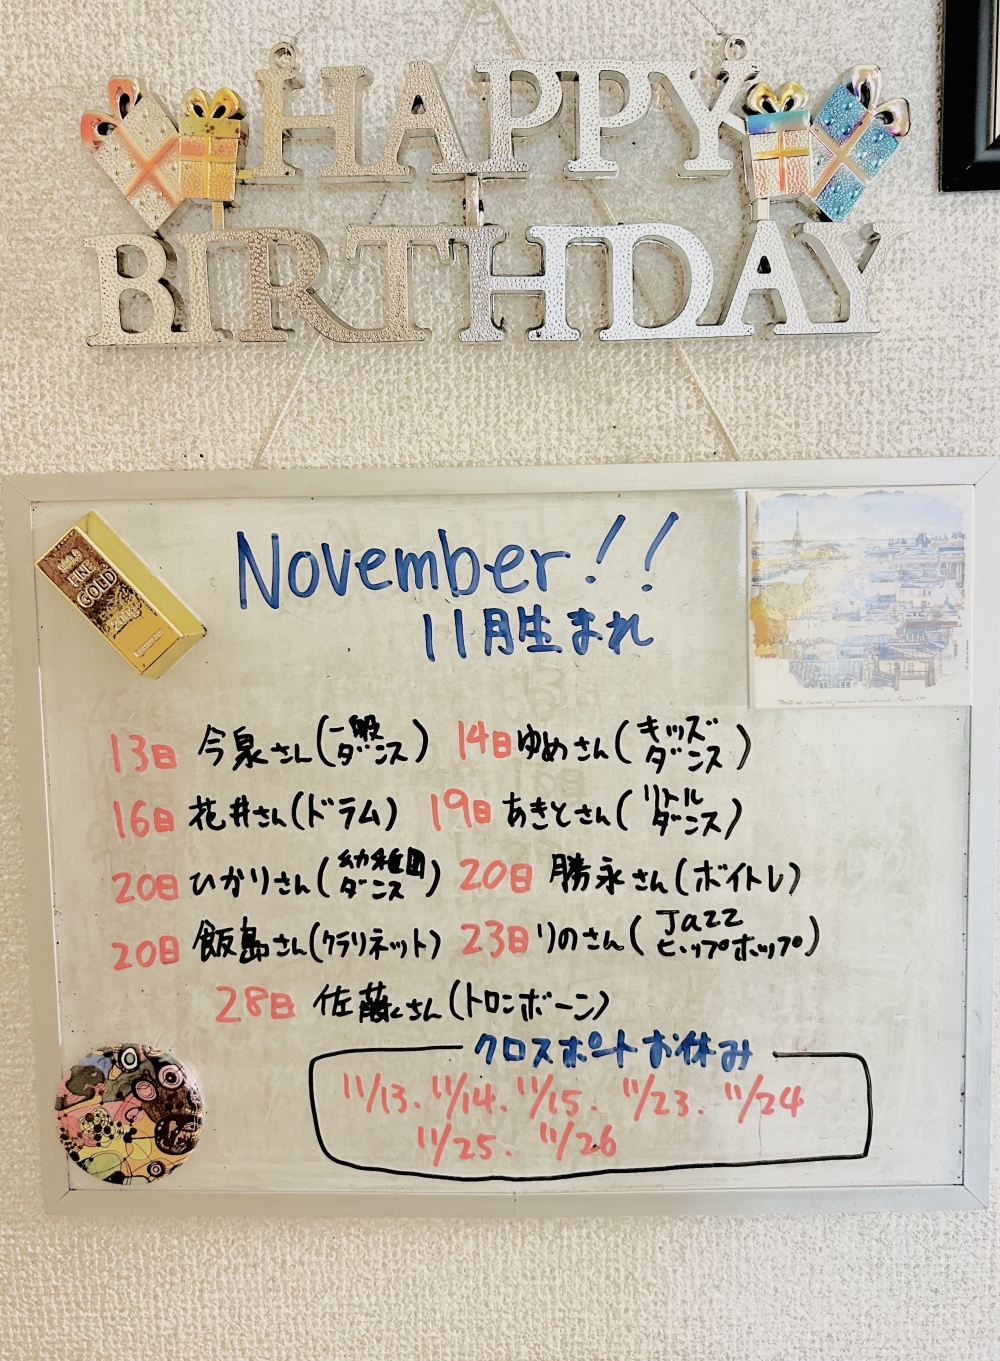 HAPPY
BIRTHDAY
FINE
GOLD
November!!
11月生まれ
13日 今泉さん(一般ダンス) 14日 ゆめさん(キッズダンス)
16日 花井さん(ドラム) 19日 あきとさん(リトルダンス)
20日 ひかりさん(幼稚園ダンス) 20日 勝永さん(ボイトレ)
20日 飯島さん(クラリネット) 23日 りのさん(Jazzヒップホップ)
28日 佐藤さん(トロンボーン)
クロスポートお休み
11/13. 11/14. 11/15. 11/23. 11/24
11/25. 11/26